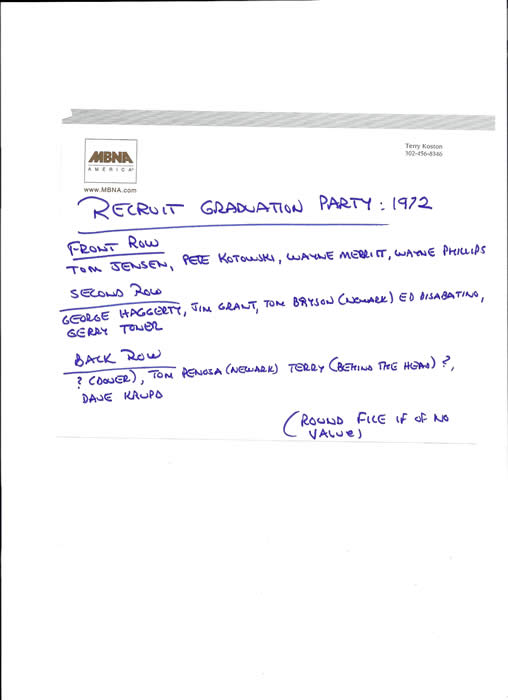 MBNA
AMERICA®
www.MBNA.com
Terry Koston
302-456-8346
RECRUIT GRADUATION PARTY: 1972
FRONT ROW
TOM JENSEN, PETE KOTOWSKI, WAYNE MERRITT, WAYNE PHILLIPS
SECOND ROW
GEORGE HAGGERTY, JIM GRANT, TOM BRYSON (NEWARK) ED DISABATINO,
GERRY TONER
BACK ROW
? (DOVER), TOM PENOSA (NEWARK) TERRY (BEHIND THE HEAD) ?,
DAVE KRUPO
(ROUND FILE IF OF NO
VALUE)